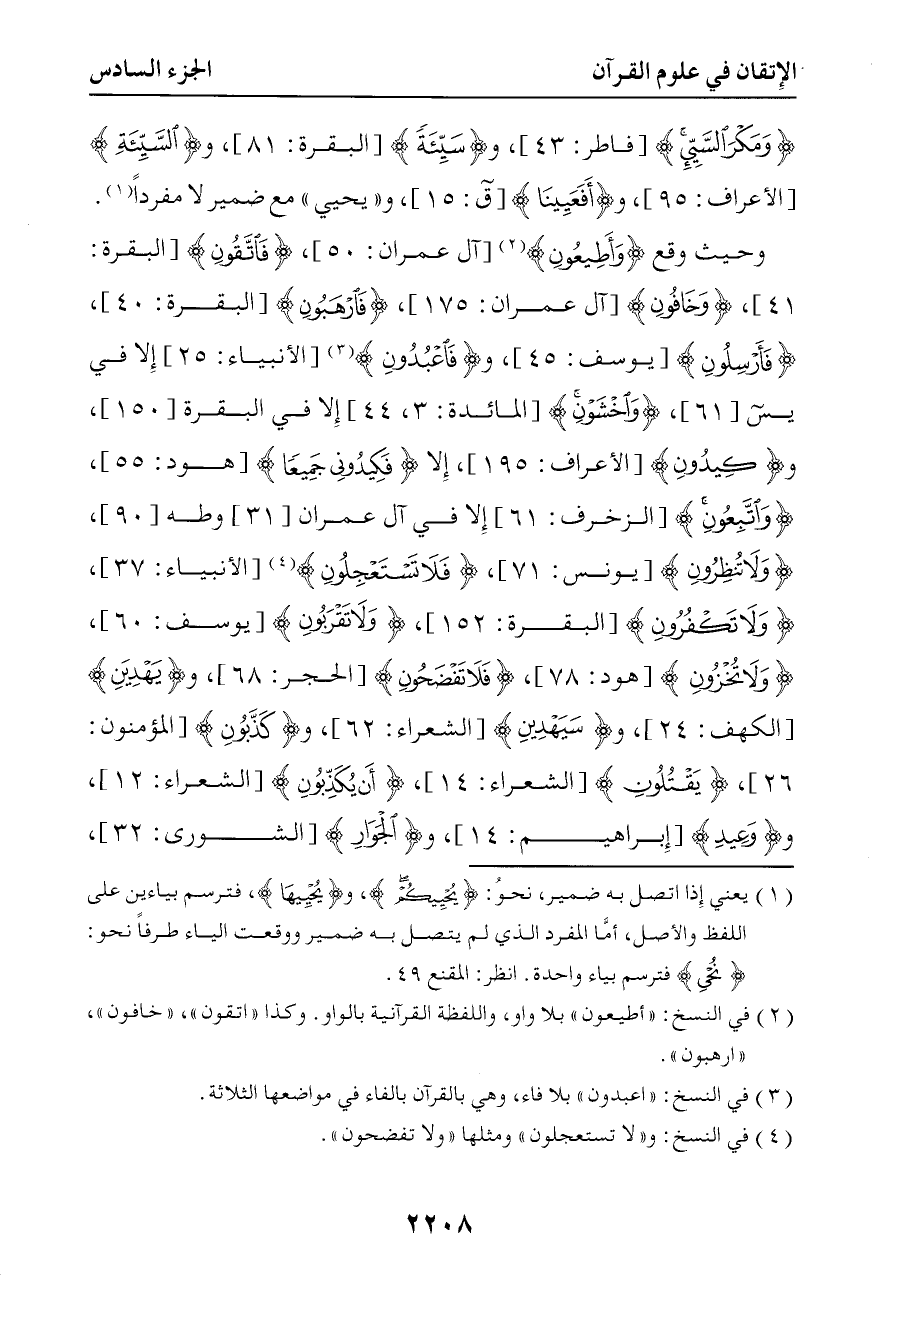 الإتقان في علوم القرآن الجزء السادس
﴿ وَمَكْرَ ٱلسَّيِّئِ ﴾ [فاطر: ٤٣]، و﴿ سَيِّئَةً ﴾ [البقرة: ٨١]، و﴿ ٱلسَّيِّئَةِ ﴾
[الأعراف: ٩٥]، و﴿ أَفَعَيِينَا ﴾ [قٓ: ١٥]، و« يحيي » مع ضمير لا مفرداً(١).
وحيث وقع ﴿ وَأَطِيعُونِ ﴾(٢) [آل عمران: ٥٠]، ﴿ فَٱتَّقُونِ ﴾ [البقرة:
٤١]، ﴿ وَخَافُونِ ﴾ [آل عمران: ١٧٥]، ﴿ فَٱرْهَبُونِ ﴾ [البقرة: ٤٠]،
﴿ فَأَرْسِلُونِ ﴾ [يوسف: ٤٥]، و﴿ فَٱعْبُدُونِ ﴾(٣) [الأنبياء: ٢٥] إلا في
يسٓ [٦١]، ﴿ وَٱخْشَوْنِ ﴾ [المائدة: ٣، ٤٤] إلا في البقرة [١٥٠]،
و﴿ كِيدُونِ ﴾ [الأعراف: ١٩٥]، إلا ﴿ فَكِيدُونِى جَمِيعًا ﴾ [هود: ٥٥]،
﴿ وَٱتَّبِعُونِ ﴾ [الزخرف: ٦١] إلا في آل عمران [٣١] وطه [٩٠]،
﴿ وَلَا تُنظِرُونِ ﴾ [يونس: ٧١]، ﴿ فَلَا تَسْتَعْجِلُونِ ﴾(٤) [الأنبياء: ٣٧]،
﴿ وَلَا تَكْفُرُونِ ﴾ [البقرة: ١٥٢]، ﴿ وَلَا تَقْرَبُونِ ﴾ [يوسف: ٦٠]،
﴿ وَلَا تُخْزُونِ ﴾ [هود: ٧٨]، ﴿ فَلَا تَفْضَحُونِ ﴾ [الحجر: ٦٨]، و﴿ يَهْدِيَنِ ﴾
[الكهف: ٢٤]، و﴿ سَيَهْدِينِ ﴾ [الشعراء: ٦٢]، و﴿ كَذَّبُونِ ﴾ [المؤمنون:
٢٦]، ﴿ يَقْتُلُونِ ﴾ [الشعراء: ١٤]، ﴿ أَن يُكَذِّبُونِ ﴾ [الشعراء: ١٢]،
و﴿ وَعِيدِ ﴾ [إبراهيم: ١٤]، و﴿ ٱلْجَوَارِ ﴾ [الشورى: ٣٢]،
(١) يعني إذا اتصل به ضمير، نحوُ: ﴿ يُحْيِيكُمْ ﴾، و﴿ يُحْيِيهَا ﴾، فترسم بياءين على
اللفظ والأصل، أمَّا المفرد الذي لم يتصل به ضمير ووقعت الياء طرفاً نحو:
﴿ نُحْيِ ﴾ فترسم بياء واحدة. انظر: المقنع ٤٩.
(٢) في النسخ: «أطيعون» بلا واو، واللفظة القرآنية بالواو. وكذا «اتقون»، «خافون»،
«ارهبون».
(٣) في النسخ: «اعبدون» بلا فاء، وهي بالقرآن بالفاء في مواضعها الثلاثة.
(٤) في النسخ: و«لا تستعجلون» ومثلها «ولا تفضحون».
٢٢٠٨